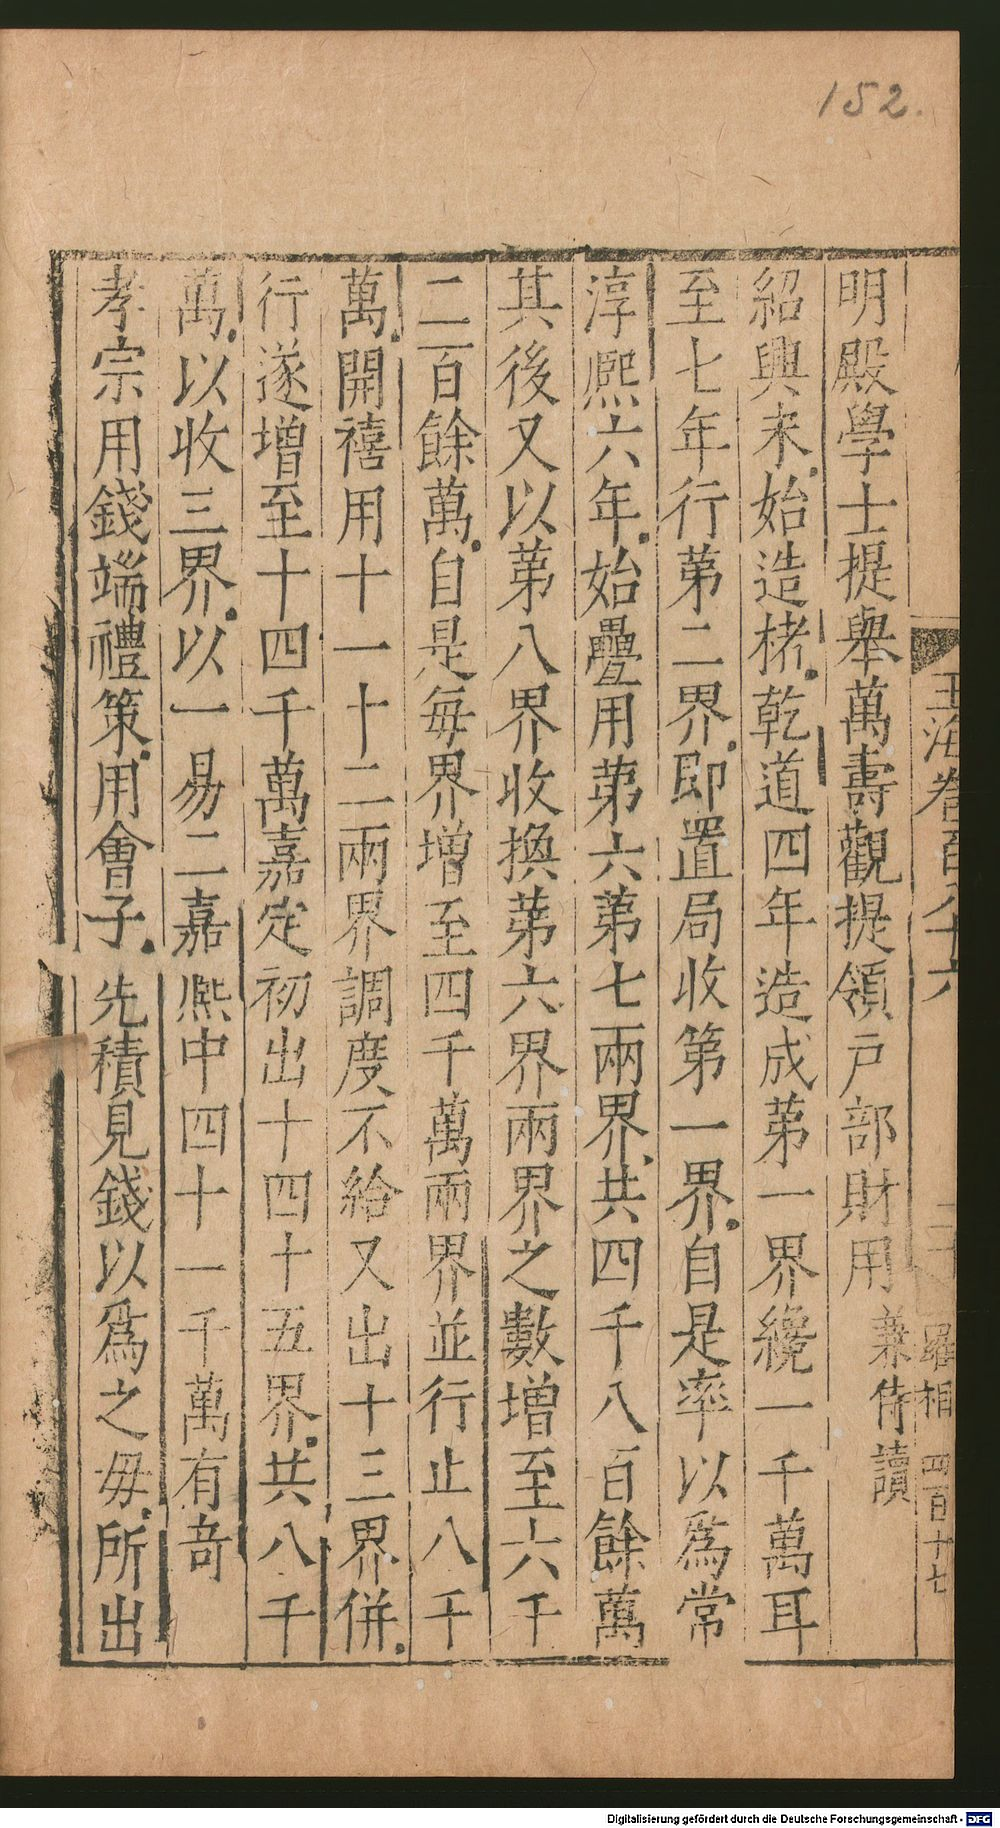 152.
玉海卷百八十六
明殿學士提舉萬壽觀提領戶部財用兼侍讀
紹興末始造楮乾道四年造成苐一界纔一千萬耳
至七年行第二界即置局收第一界自是率以爲常
淳熈六年始疊用苐六苐七兩界共四千八百餘萬
其後又以苐八界收換苐六界兩界之數增至六千
二百餘萬自是每界增至四千萬兩界並行止八千
萬開禧用十一十二兩界調度不給又出十三界併
行遂增至十四千萬嘉定初出十四十五界共八千
萬以收三界以一易二嘉熈中四十一千萬有竒
孝宗用錢端禮策用會子先積見錢以爲之毋所出
Digitalisierung gefördert durch die Deutsche Forschungsgemeinschaft - DFG